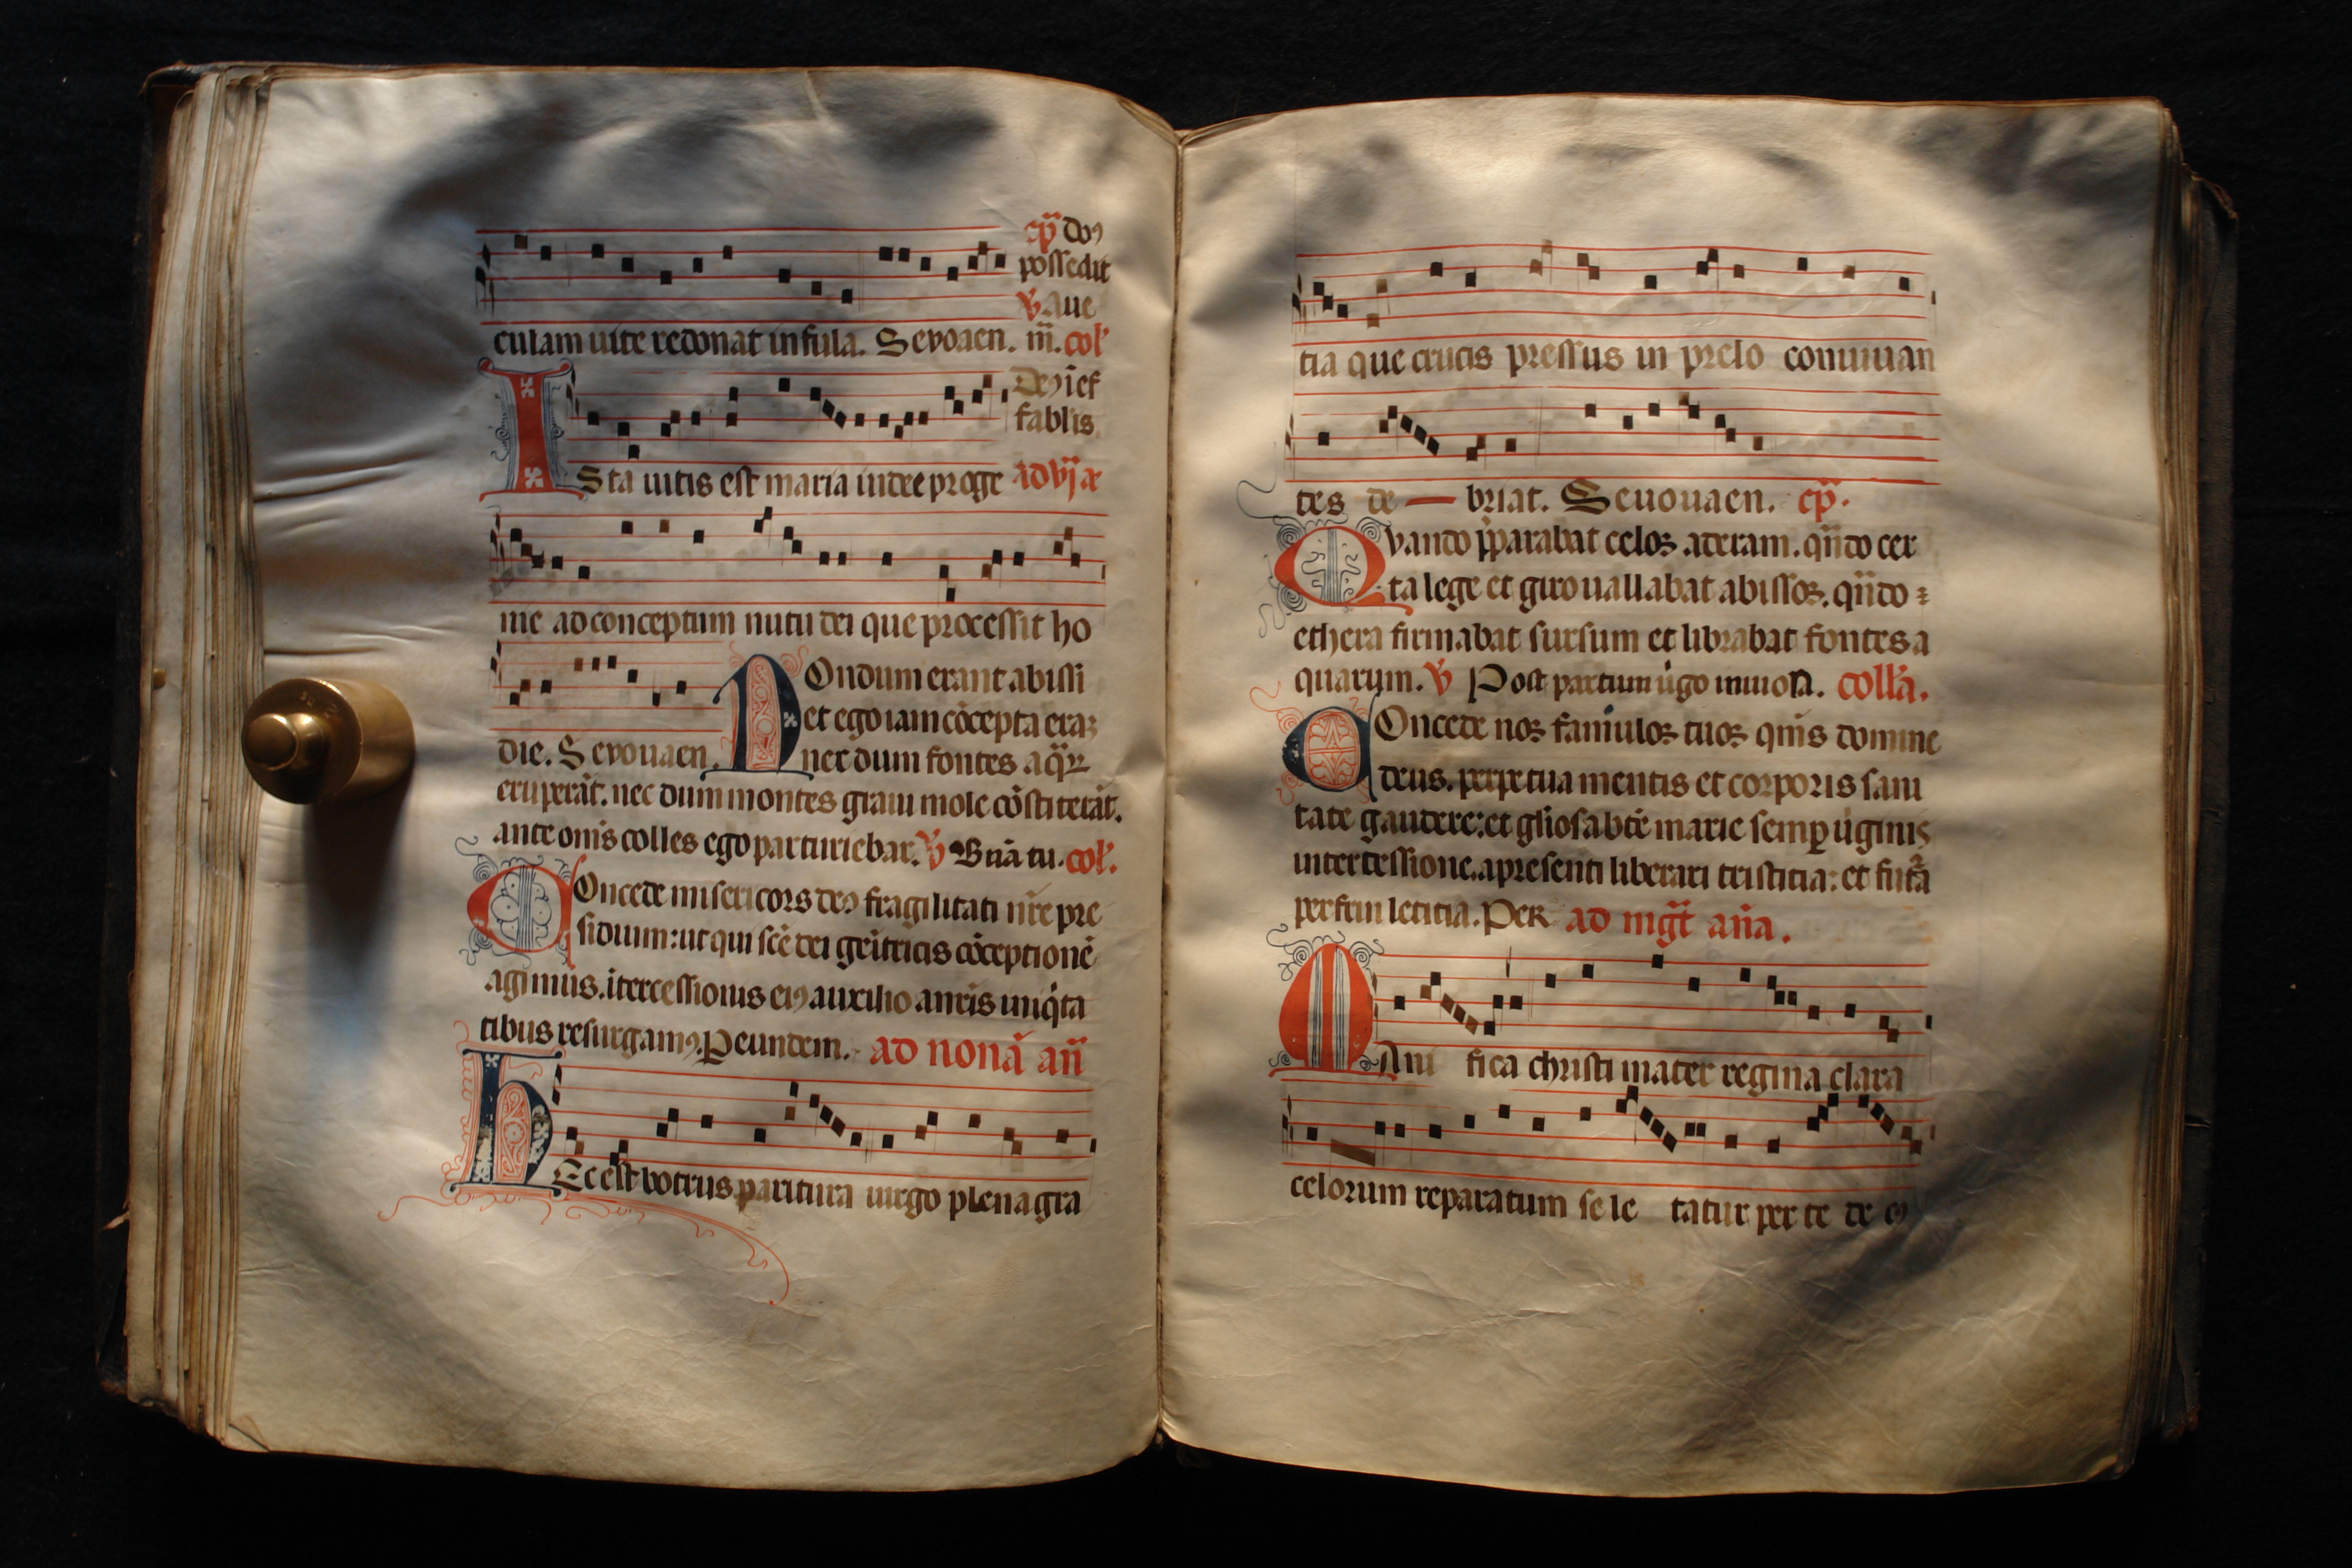 cap̃ doꝯ
possedit
℣. aue
culam uite redonat insula. Sevoaen. m̃. col'
Deꝯ ief
fabilis
Ista uitis est maria iudee proge ad vj ã
nie ad conceptum nutu dei que processit ho
Nondum erant abissi
et ego iam cõcepta eraꝫ
die. Sevouaen. nec dum fontes aq̃ꝝ
eruperãt. nec dum montes graui mole cõstiterãt.
ante om̃is colles ego parturiebar. ℣ Btiã tu. col'.
Concede misericors deꝯ fragilitati nr̃e pre
sidium: ut qui scẽ dei geñitricis cõceptionẽ
agimus. ĩtercessionis eiꝯ auxilio a nr̃is iniq̇ta
tibus resurgamꝯ. P eundem. ad nonã añ
Hec est botrus paritura uirgo plena gra
tia que crucis pressus in prelo conuiuan
tes de — briat. Seuouaen. cap̃.
Quando p̃parabat celoꝫ aderam. qñdo cer
ta lege et giro uallabat abissoꝫ. qñdo
ethera firmabat sursum et librabat fontes a
quarum. ℣ Post partum u̇go inuiola. coll'a.
Concede noꝫ famuloꝫ tuoꝫ qm̃s domine
deus. perpetua mentis et corporis sani
tate gaudere: et gl'iosa btẽ marie semꝑ u̇ginis
intercessione. a presenti liberari tristicia: et futã
perfrui leticia. Per ad mgt̃ añã.
Mani fica christi mater regina clara
celorum reparatum se le tatur per te de eꝯ